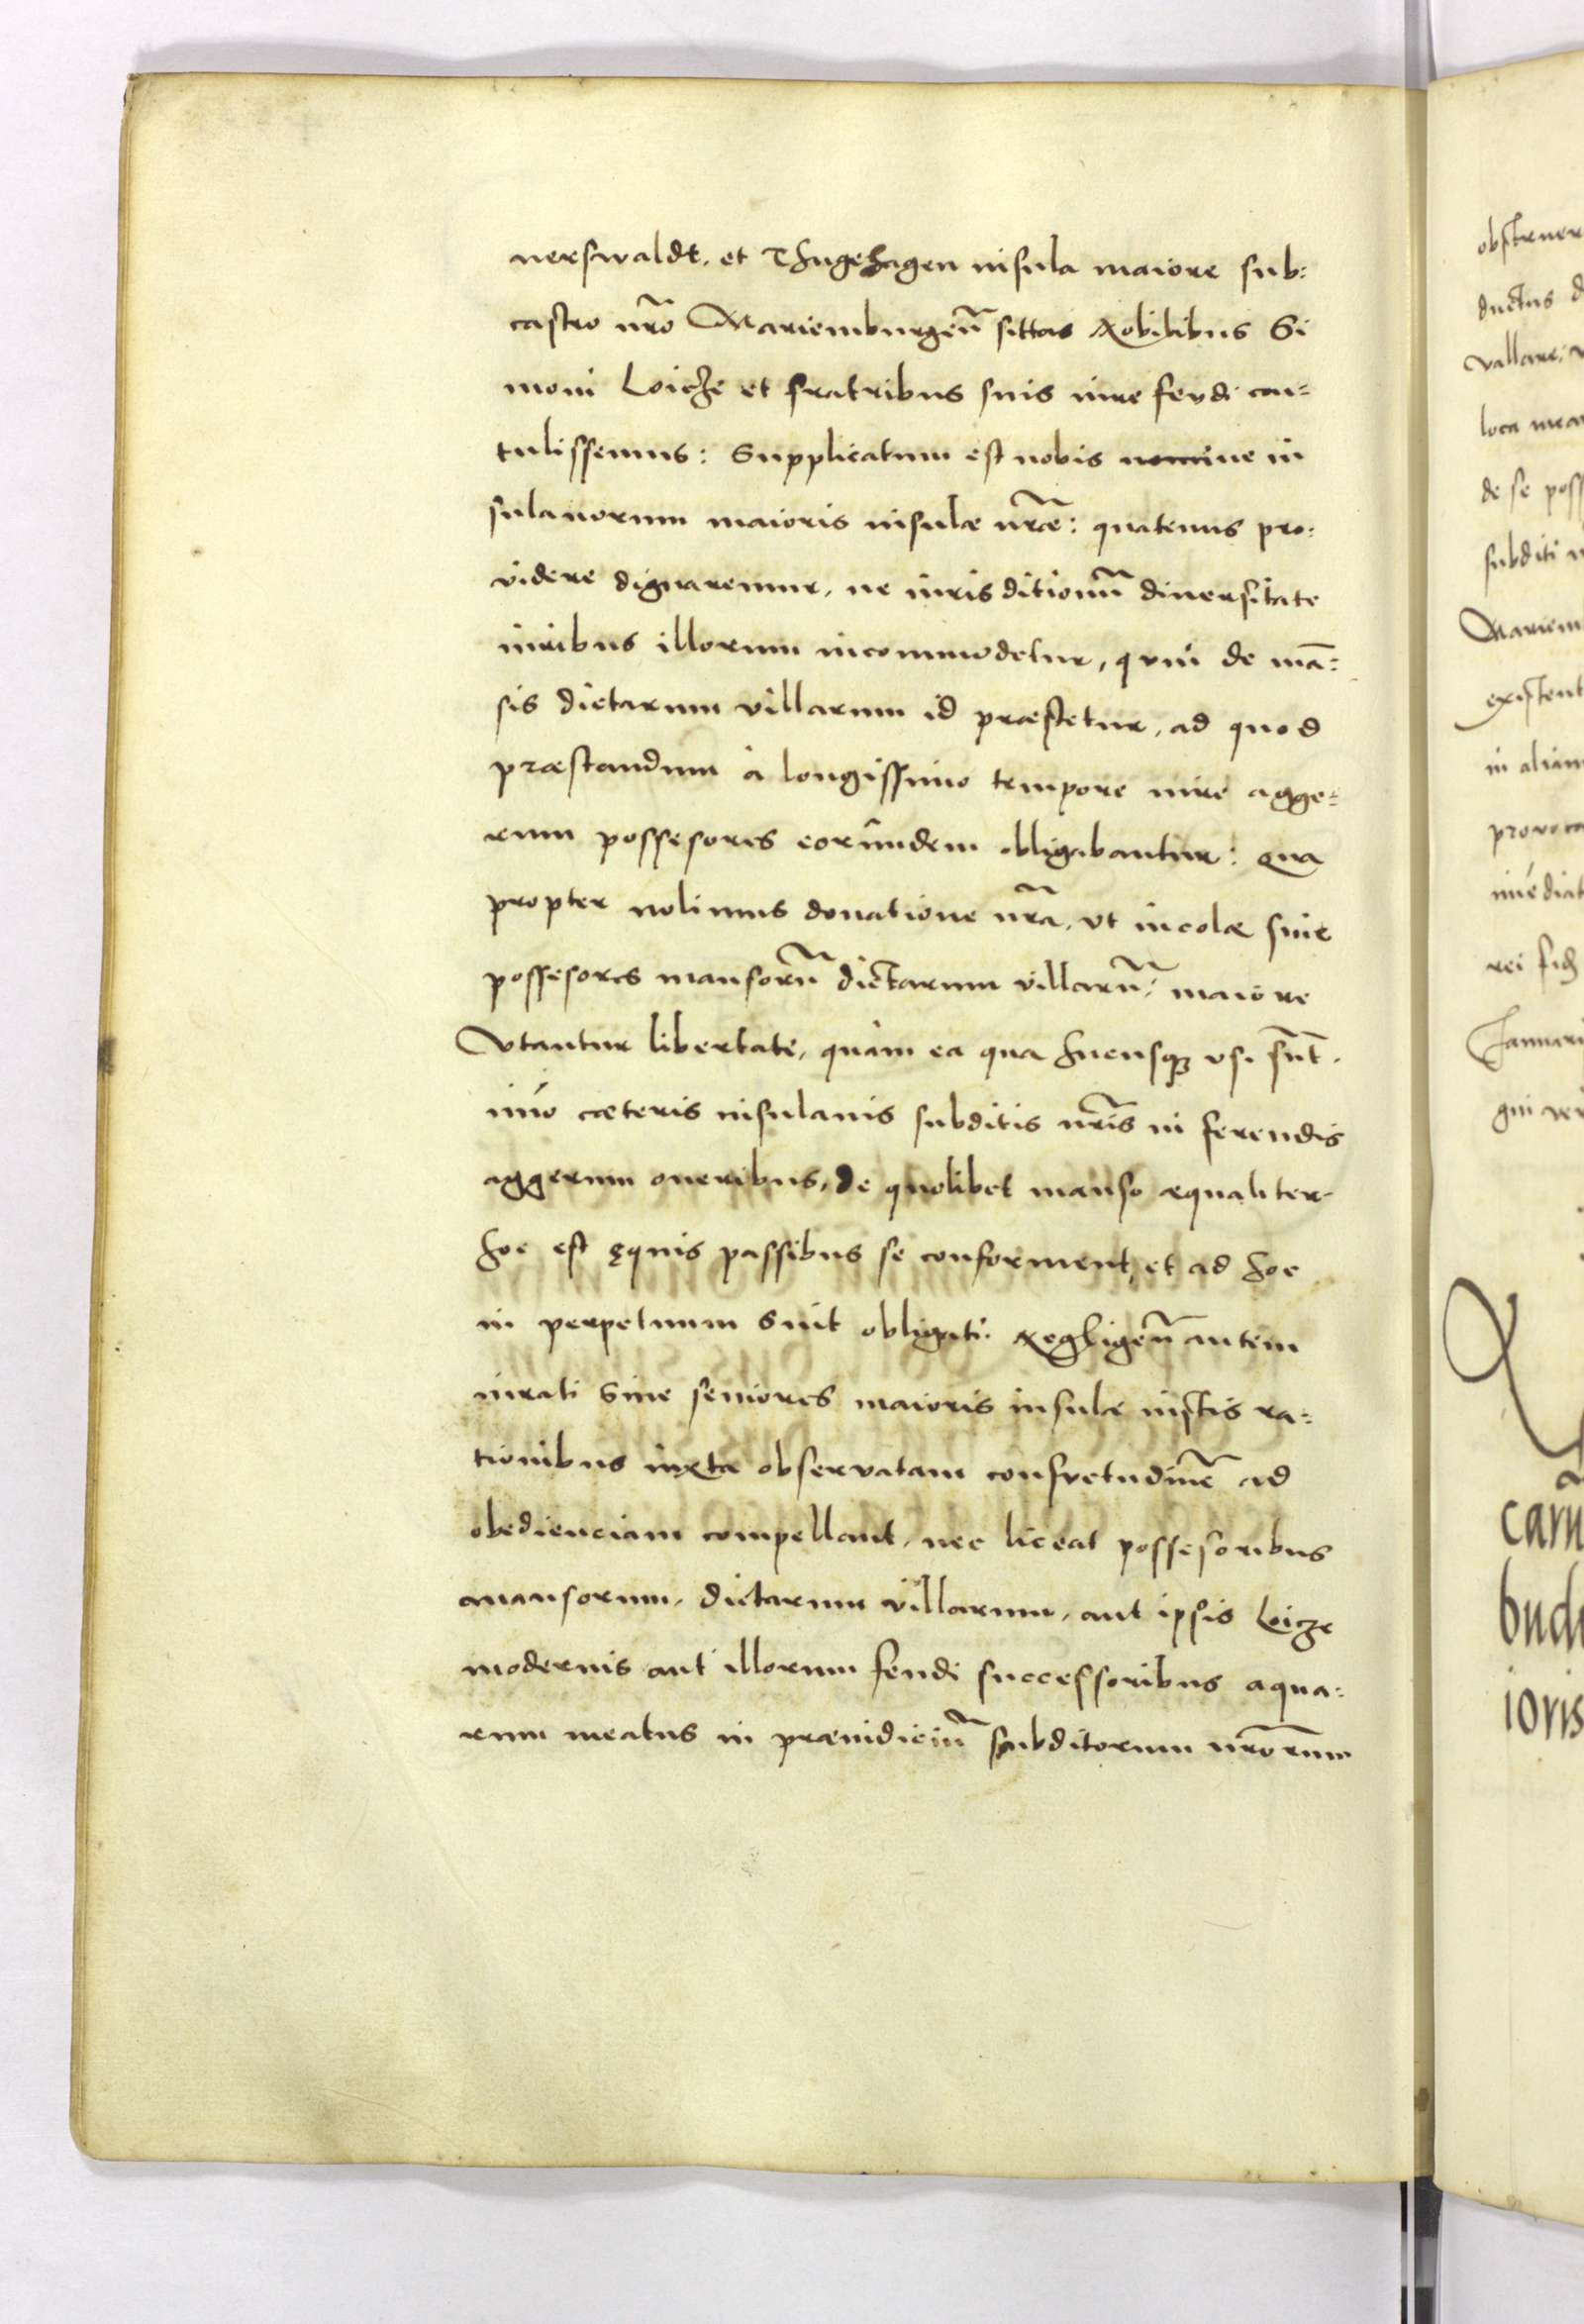 nerswaldt, et Thugehagen insula maiore sub:
castro nr̃o Mariemburgeñ sittas Nobilibus Si
moni Loicze et fratribus suis iure feudi con=
tulissemus: Supplicatum est nobis nomine in
sulanorum maioris insulæ nr̃æ: quatenus pro:
videre dignaremur, ne iuris ditionũ diuersitate
iuribus illorum incommodetur, quin de mã=
sis dictarum villarum id præstetur, ad quod
præstandum à longissimo tempore iure agge=
rum possesores eorundem obligabantur: Qua
propter nolimus donatione nr̃a, vt incolæ siue
possesores mansorũ dictarum villarũ, maiore
Vtantur libertate, quàm ea qua hucusq₃ vsi sũt.
imó cæteris insulanis subditis nr̃is in ferendis
aggerum oneribus, de quolibet manso æqualiter
hoc est ęquis passibus se conforment, et ad hoc
in perpetuum sint obligati. Negligeñ autem
iurati Siue seniores maioris insulæ iustis ra=
tionibus iuxta obseruatam consuetudinẽ ad
obedienciam compellant, nec liceat possesoribus
mansorum, dictarum villarum, aut ipsis Loicze
modernis aut illorum feudi successoribus aqua:
rum meatus in præiudiciũ subditorum nr̃orum
obstruer
ductus d
vallare,
loca mea
de se poss
subditi n
Mariem
existent
in aliam
provoca
imẽdiat
rei fid
Januari
gni ver
caru
buch
ioris